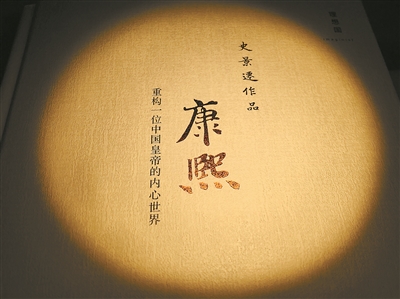 史景迁作品
康熙
重构一位中国皇帝的内心世界